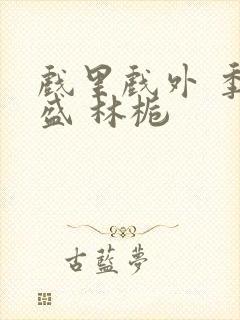 戲里戲外 季
盛 林栀
古藍夢